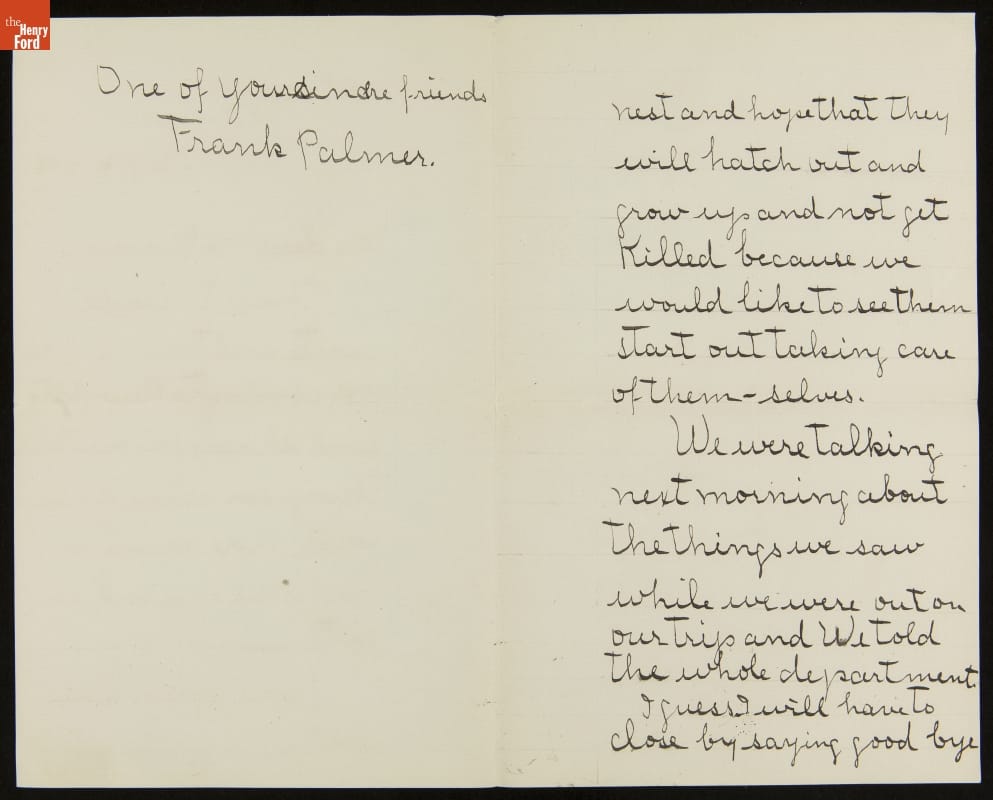 the
Henry
Ford
One of your sincere friends
Frank Palmer.
nest and hope that they
will hatch out and
grow up and not get
Killed because we
would like to see them
start out taking care
of them-selves.
We were talking
next morning about
the things we saw
while we were out on
our trip and We told
the whole department.
I guess I will have to
close by saying good bye